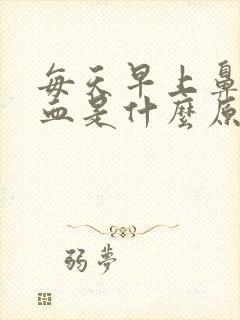 每天早上鼻
血是什麼原
弱夢